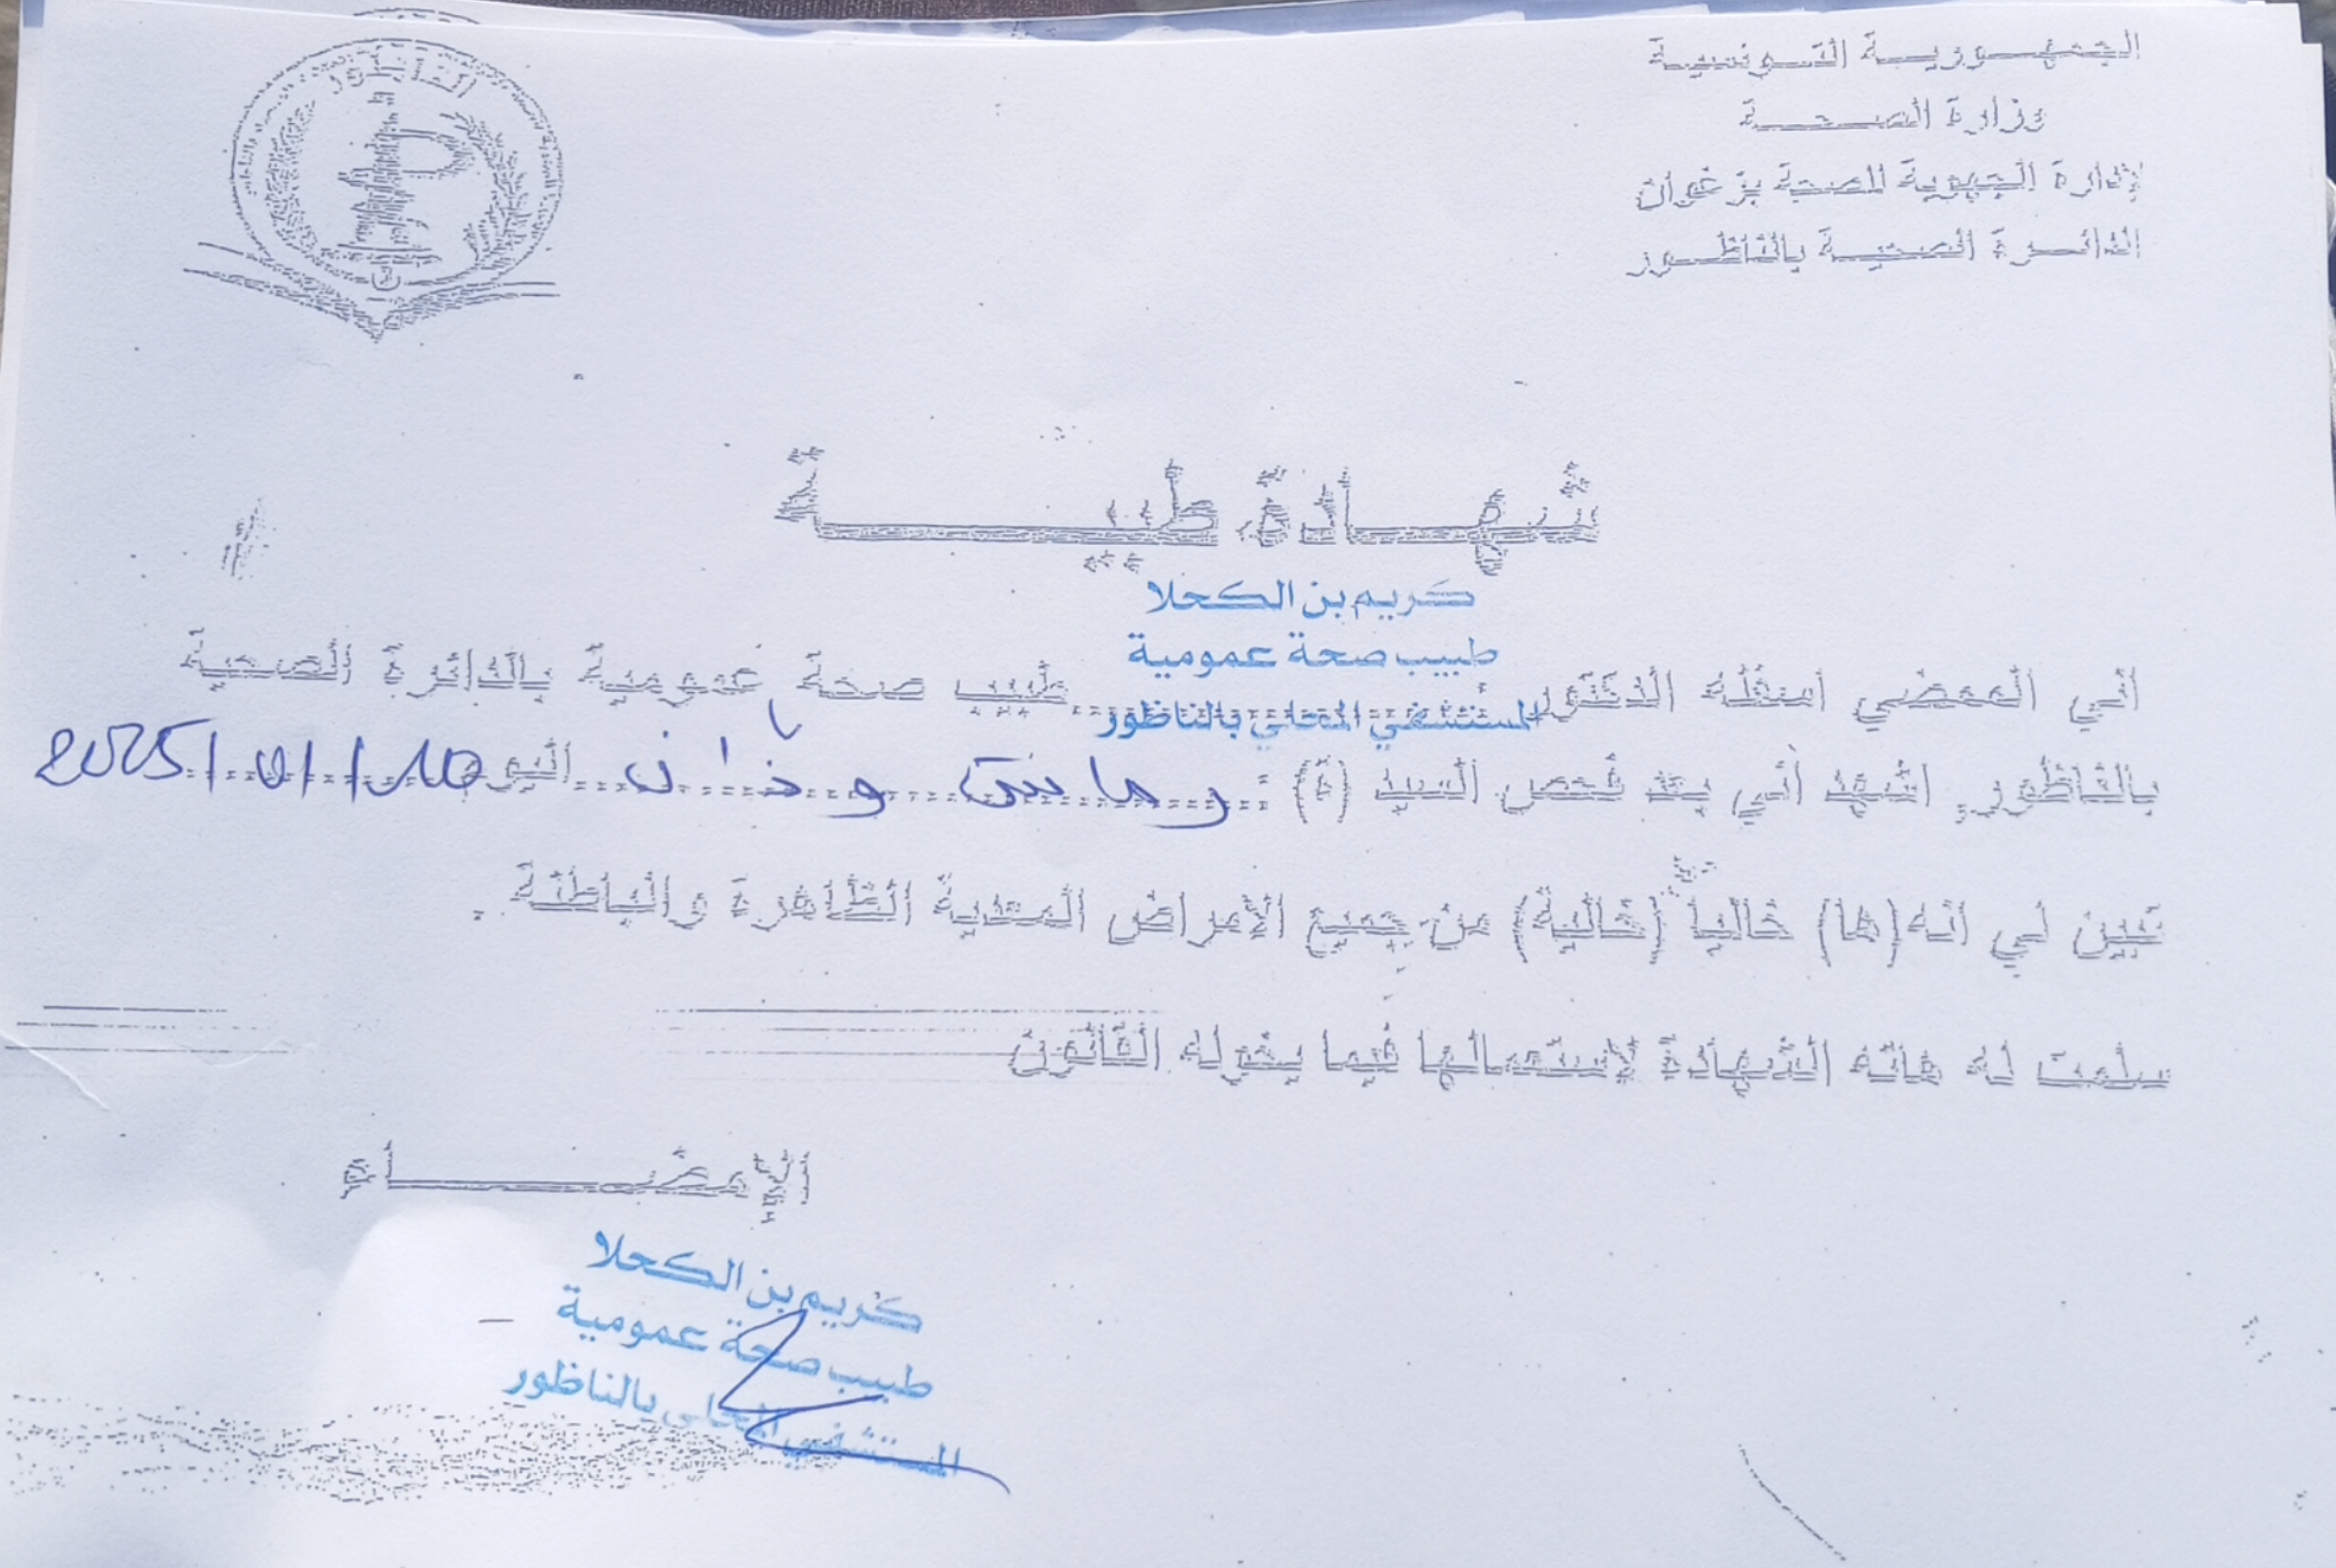 الجمهورية التونسية
وزارة الصحة
الإدارة الجهوية للصحة بزغوان
الدائرة الصحية بالناظور
الناظور
شهادة طبية
كريم بن الكحلا
طبيب صحة عمومية
المستشفى المحلي بالناظور
أني الممضي اسفله الدكتور طبيب صحة عمومية بالدائرة الصحية
بالناظور, اشهد أني بعد فحص السيد (ة) : اليوم 10/01/2025
تبين لي انه(ها) خالياً (خالية) من جميع الأمراض المعدية الظاهرة والباطنة .
سلمت له هاته الشهادة لإستعمالها فيما يخوله القانون
الإمضاء
كريم بن الكحلا
طبيب صحة عمومية
المستشفى المحلي بالناظور